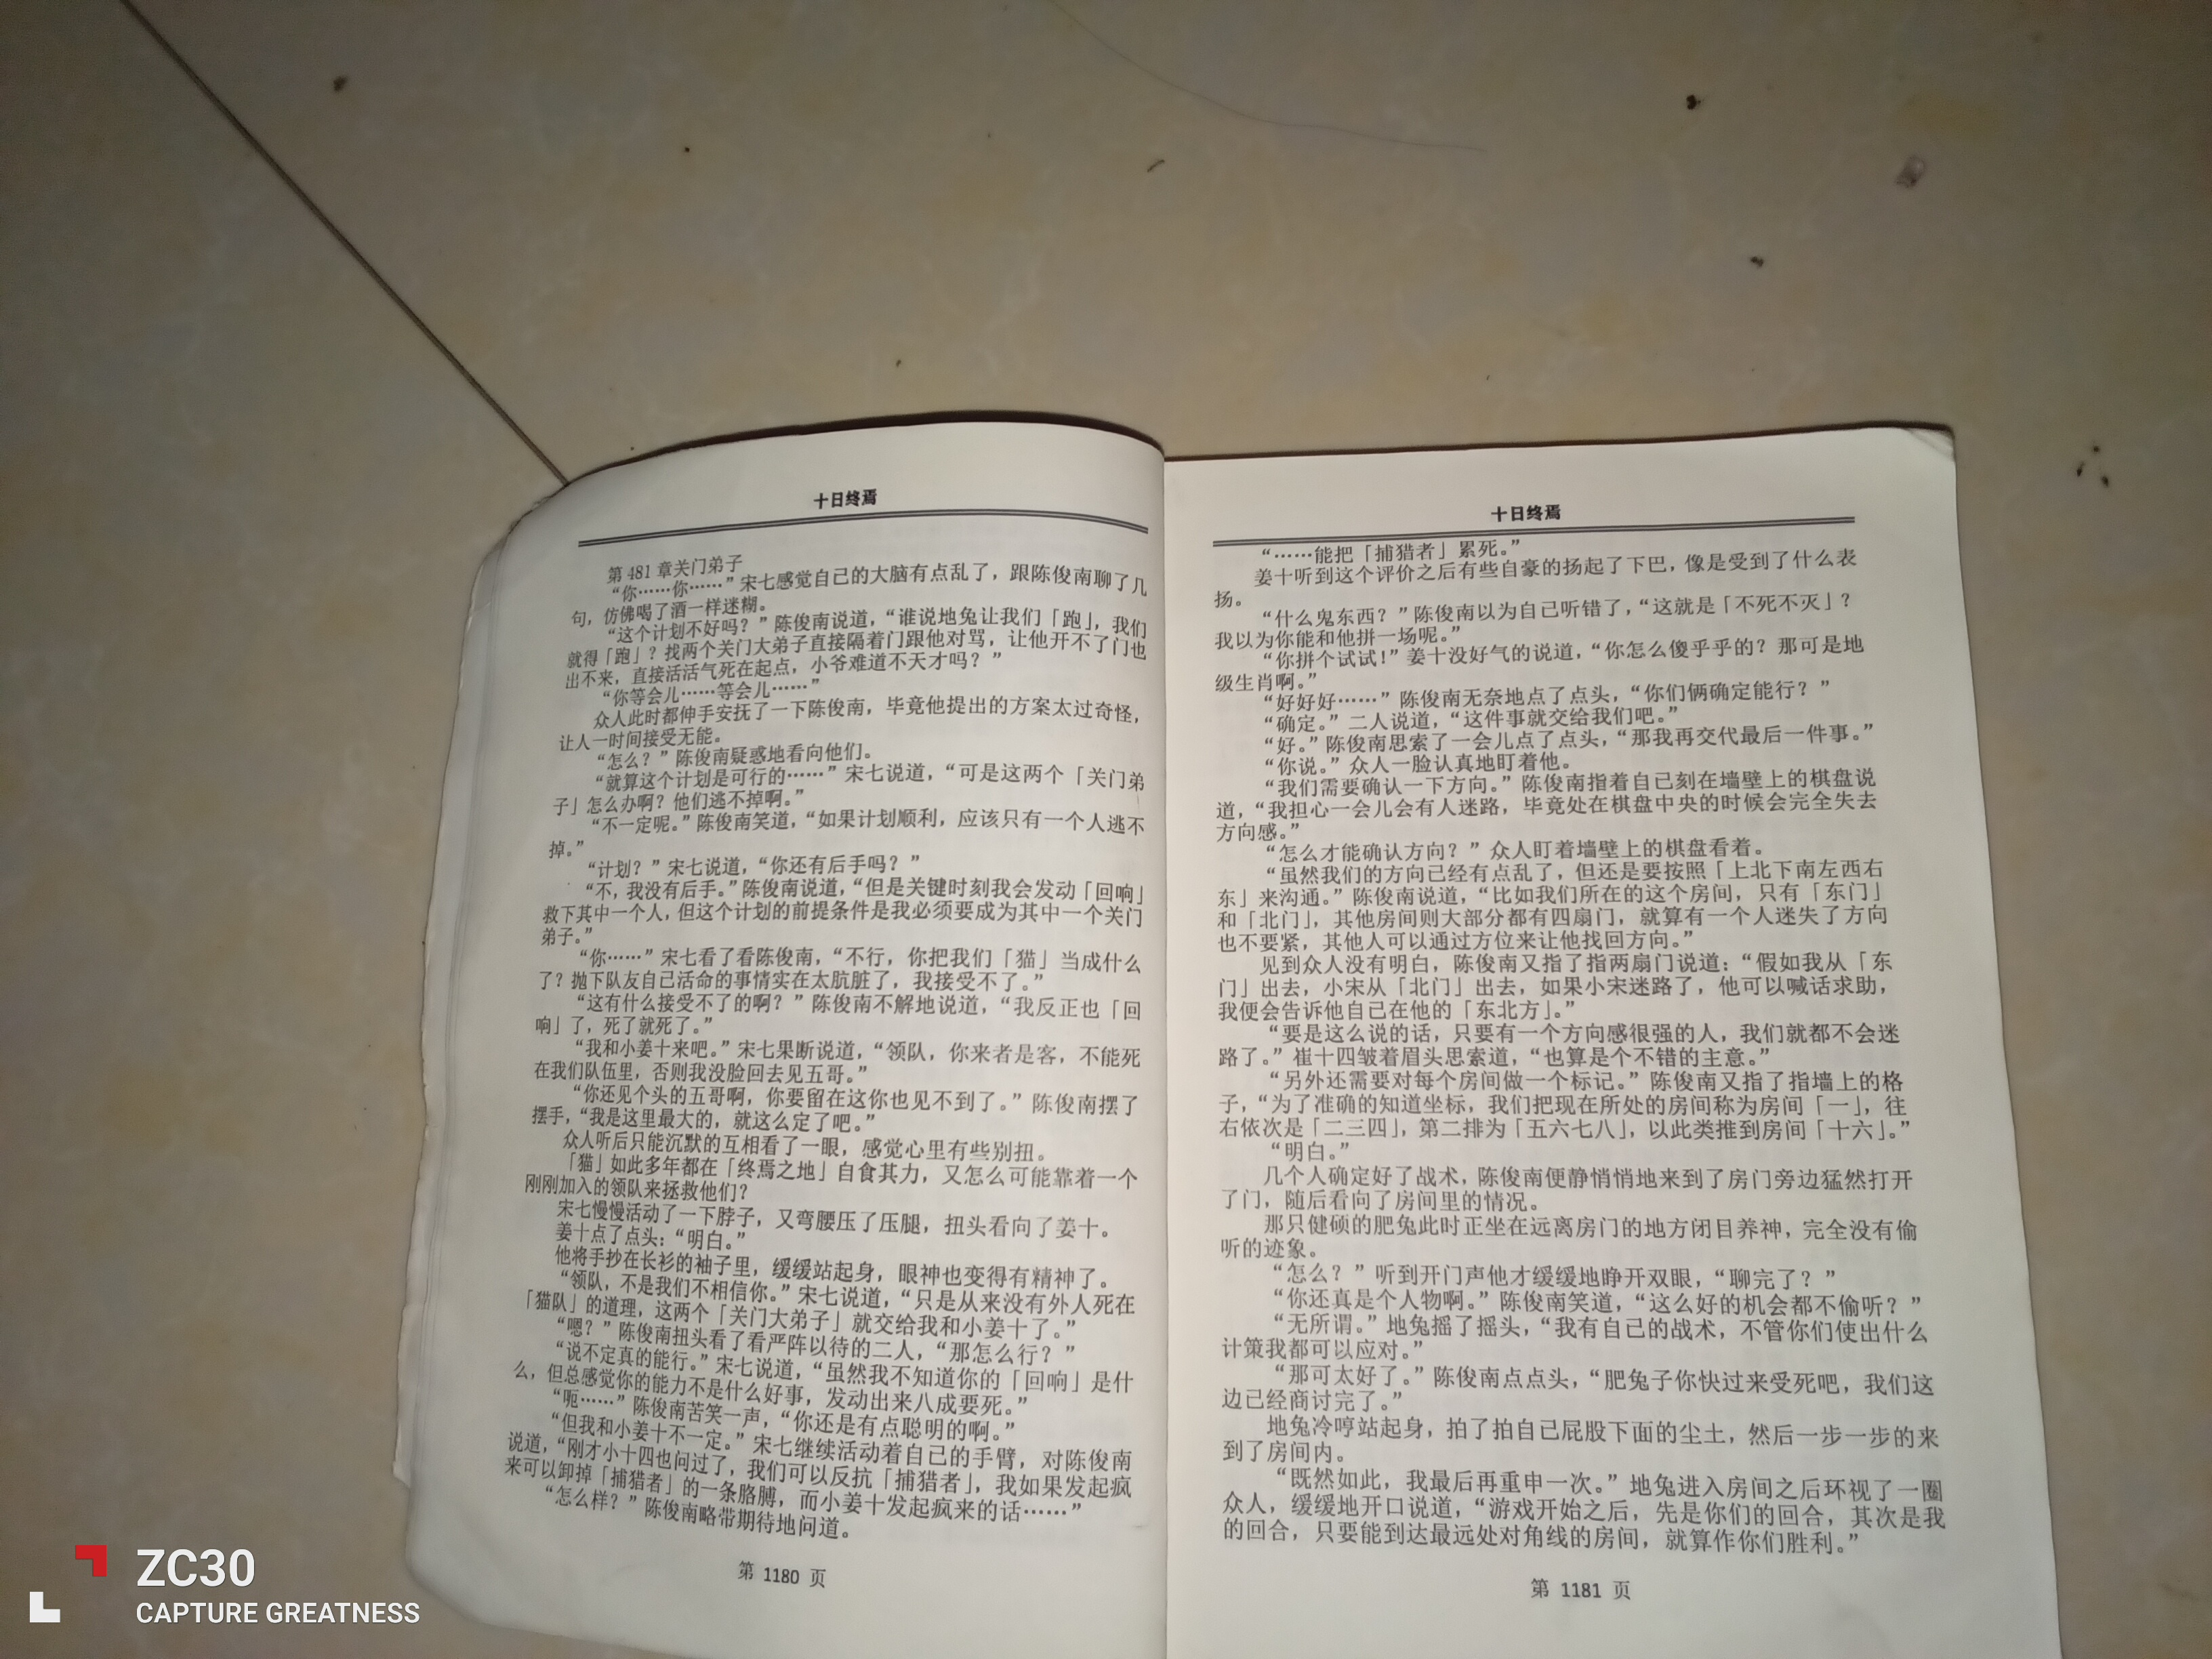 十日终焉
第 481 章关门弟子
“你……你……”宋七感觉自己的大脑有点乱了，跟陈俊南聊了几
句，仿佛喝了酒一样迷糊。
“这个计划不好吗？”陈俊南说道，“谁说地兔让我们「跑」，我们
就得「跑」？找两个关门大弟子直接隔着门跟他对骂，让他开不了门也
出不来，直接活活气死在起点，小爷难道不天才吗？”
“你等会儿……等会儿……”
众人此时都伸手安抚了一下陈俊南，毕竟他提出的方案太过奇怪，
让人一时间接受无能。
“怎么？”陈俊南疑惑地看向他们。
“就算这个计划是可行的……”宋七说道，“可是这两个「关门弟
子」怎么办啊？他们逃不掉啊。”
“不一定呢。”陈俊南笑道，“如果计划顺利，应该只有一个人逃不
掉。”
“计划？”宋七说道，“你还有后手吗？”
“不，我没有后手。”陈俊南说道，“但是关键时刻我会发动「回响」
救下其中一个人，但这个计划的前提条件是我必须要成为其中一个关门
弟子。”
“你……”宋七看了看陈俊南，“不行，你把我们「猫」当成什么
了？抛下队友自己活命的事情实在太肮脏了，我接受不了。”
“这有什么接受不了的啊？”陈俊南不解地说道，“我反正也「回
响」了，死了就死了。”
“我和小姜十来吧。”宋七果断说道，“领队，你来者是客，不能死
在我们队伍里，否则我没脸回去见五哥。”
“你还见个头的五哥啊，你要留在这你也见不到了。”陈俊南摆了
摆手，“我是这里最大的，就这么定了吧。”
众人听后只能沉默的互相看了一眼，感觉心里有些别扭。
「猫」如此多年都在「终焉之地」自食其力，又怎么可能靠着一个
刚刚加入的领队来拯救他们？
宋七慢慢活动了一下脖子，又弯腰压了压腿，扭头看向了姜十。
姜十点了点头：“明白。”
他将手抄在长衫的袖子里，缓缓站起身，眼神也变得有精神了。
“领队，不是我们不相信你。”宋七说道，“只是从来没有外人死在
「猫队」的道理，这两个「关门大弟子」就交给我和小姜十了。”
“嗯？”陈俊南扭头看了看严阵以待的二人，“那怎么行？”
“说不定真的能行。”宋七说道，“虽然我不知道你的「回响」是什
么，但总感觉你的能力不是什么好事，发动出来八成要死。”
“呃……”陈俊南苦笑一声，“你还是有点聪明的啊。”
“但我和小姜十不一定。”宋七继续活动着自己的手臂，对陈俊南
说道，“刚才小十四也问过了，我们可以反抗「捕猎者」，我如果发起疯
来可以卸掉「捕猎者」的一条胳膊，而小姜十发起疯来的话……”
“怎么样？”陈俊南略带期待地问道。
第 1180 页
十日终焉
“……能把「捕猎者」累死。”
姜十听到这个评价之后有些自豪的扬起了下巴，像是受到了什么表
扬。
“什么鬼东西？”陈俊南以为自己听错了，“这就是「不死不灭」？
我以为你能和他拼一场呢。”
“你拼个试试！”姜十没好气的说道，“你怎么傻乎乎的？那可是地
级生肖啊。”
“好好好……”陈俊南无奈地点了点头，“你们俩确定能行？”
“确定。”二人说道，“这件事就交给我们吧。”
“好。”陈俊南思索了一会儿点了点头，“那我再交代最后一件事。”
“你说。”众人一脸认真地盯着他。
“我们需要确认一下方向。”陈俊南指着自己刻在墙壁上的棋盘说
道，“我担心一会儿会有人迷路，毕竟处在棋盘中央的时候会完全失去
方向感。”
“怎么才能确认方向？”众人盯着墙壁上的棋盘看着。
“虽然我们的方向已经有点乱了，但还是要按照「上北下南左西右
东」来沟通。”陈俊南说道，“比如我们所在的这个房间，只有「东门」
和「北门」，其他房间则大部分都有四扇门，就算有一个人迷失了方向
也不要紧，其他人可以通过方位来让他找回方向。”
见到众人没有明白，陈俊南又指了指两扇门说道：“假如我从「东
门」出去，小宋从「北门」出去，如果小宋迷路了，他可以喊话求助，
我便会告诉他自己在他的「东北方」。”
“要是这么说的话，只要有一个方向感很强的人，我们就都不会迷
路了。”崔十四皱着眉头思索道，“也算是个不错的主意。”
“另外还需要对每个房间做一个标记。”陈俊南又指了指墙上的格
子，“为了准确的知道坐标，我们把现在所处的房间称为房间「一」，往
右依次是「二三四」，第二排为「五六七八」，以此类推到房间「十六」。”
“明白。”
几个人确定好了战术，陈俊南便静悄悄地来到了房门旁边猛然打开
了门，随后看向了房间里的情况。
那只健硕的肥兔此时正坐在远离房门的地方闭目养神，完全没有偷
听的迹象。
“怎么？”听到开门声他才缓缓地睁开双眼，“聊完了？”
“你还真是个人物啊。”陈俊南笑道，“这么好的机会都不偷听？”
“无所谓。”地兔摇了摇头，“我有自己的战术，不管你们使出什么
计策我都可以应对。”
“那可太好了。”陈俊南点点头，“肥兔子你快过来受死吧，我们这
边已经商讨完了。”
地兔冷哼站起身，拍了拍自己屁股下面的尘土，然后一步一步的来
到了房间内。
“既然如此，我最后再重申一次。”地兔进入房间之后环视了一圈
众人，缓缓地开口说道，“游戏开始之后，先是你们的回合，其次是我
的回合，只要能到达最远处对角线的房间，就算作你们胜利。”
第 1181 页
ZC30
CAPTURE GREATNESS